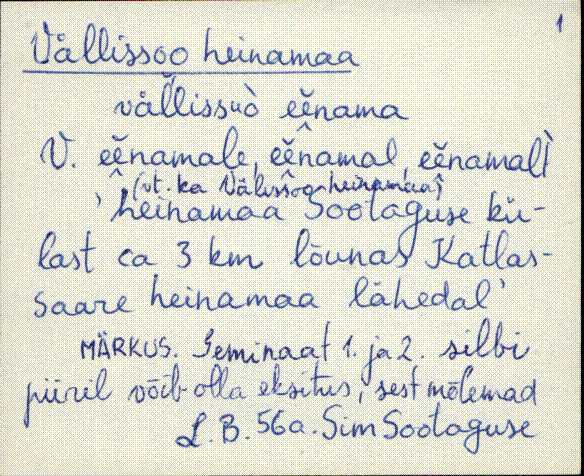 1
Vällissoo heinamaa
väl̆lissuò eĕnama
V. eĕnamale, eĕnamal, eĕnamalt̀
(vt. ka Välissoo heinamaa)
'heinamaa Sootaguse kü-
last ca 3 km lõunas Katlas-
saare heinamaa lähedal'
MÄRKUS. Geminaat 1. ja 2. silbi
piiril võib olla eksitus, sest mõlemad
L.B. 56a. Sim Sootaguse